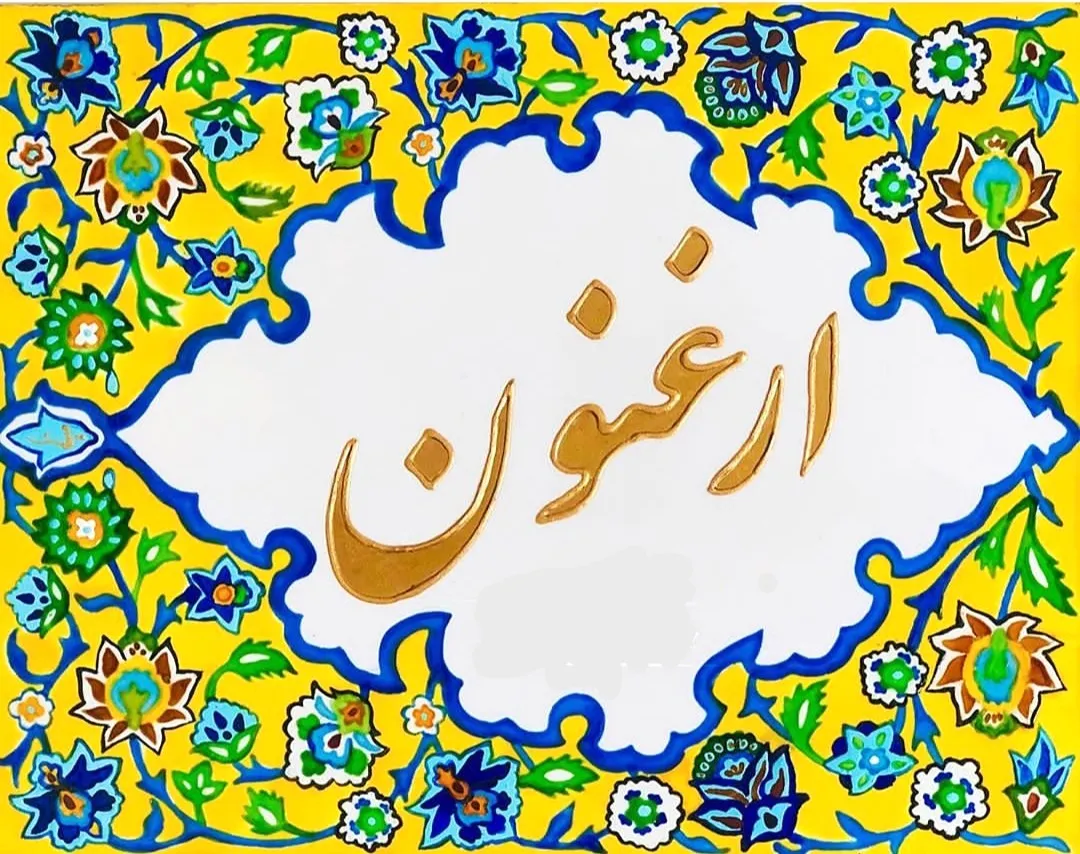 ارغنون